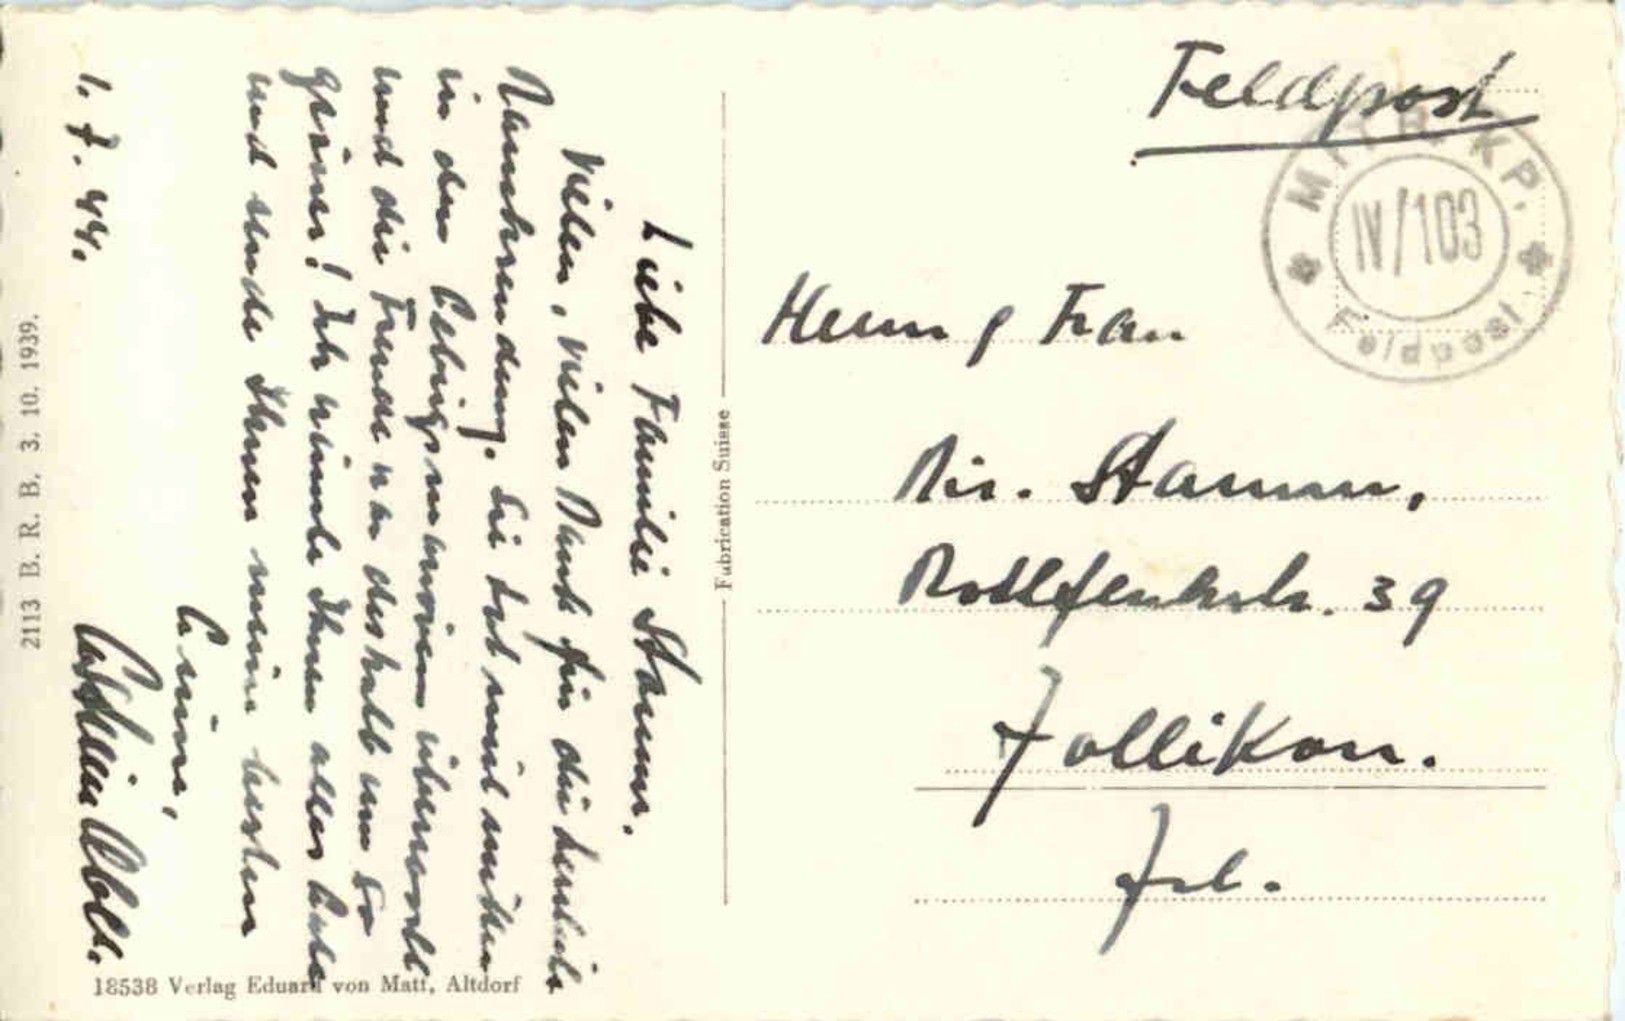 Feldpost
MITR. KP.
IV/103
Feldpost
Herrn & Frau
Dir. Stamm,
Rotfluhstr. 39
Zollikon.
Zch.
Fabrication Suisse
Liebe Familie Stamm.
Vielen, vielen Dank für die herrliche
Rauchsendung. Sie hat mich mitten
in den Gebirgsmanövern überrascht
und die Freude war deshalb um so
grösser! Ich wünsche Ihnen alles Gute
und sende Ihnen meine besten
Grüsse,
1. 7. 44.
2113 B. R. B. 3. 10. 1939.
18538 Verlag Eduard von Matt, Altdorf